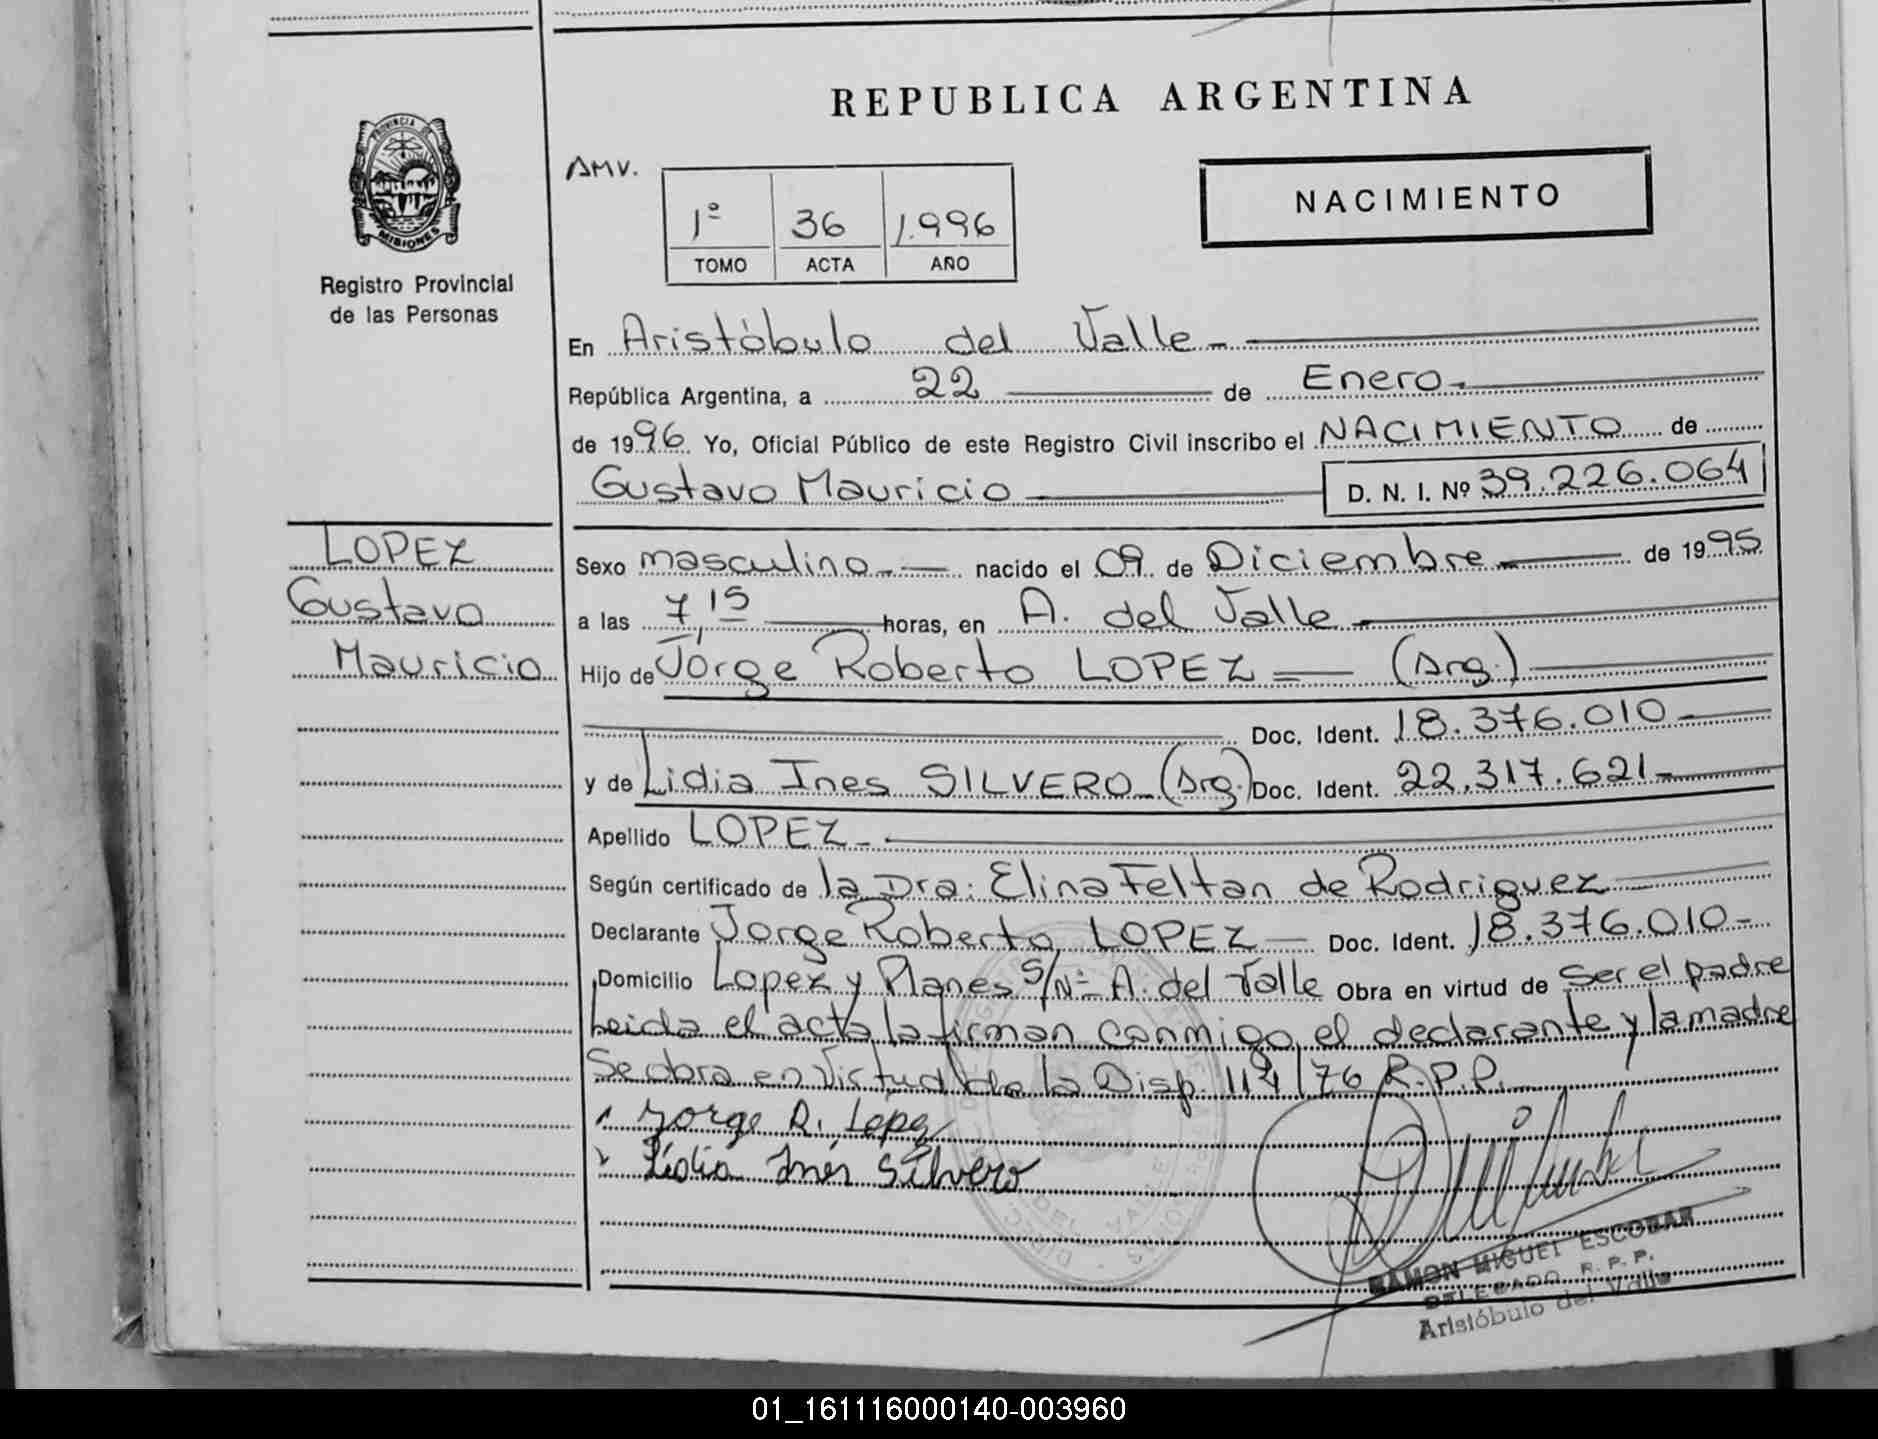 REPUBLICA ARGENTINA
PROVINCIA DE
MISIONES
Registro Provincial
de las Personas
AMV.
1º 36 1.996
TOMO ACTA AÑO
NACIMIENTO
En Aristóbulo del Valle.-
República Argentina, a 22 de Enero.-
de 1996 Yo, Oficial Público de este Registro Civil inscribo el NACIMIENTO de
Gustavo Mauricio D. N. I. Nº 39.226.064
LOPEZ
Gustavo
Mauricio
Sexo masculino.- nacido el 09 de Diciembre de 1995
a las 7,15 horas, en A. del Valle.-
Hijo de Jorge Roberto LOPEZ (Arg.)
Doc. Ident. 18.376.010-
y de Lidia Ines SILVERO (Arg.) Doc. Ident. 22.317.621-
Apellido LOPEZ.-
Según certificado de la Dra: Elina Feltan de Rodriguez
Declarante Jorge Roberto LOPEZ Doc. Ident. 18.376.010-
Domicilio Lopez y Planes S/Nº A. del Valle Obra en virtud de Ser el padre
Leida el acta la firman conmigo el declarante y la madre
Se obra en virtud de la Disp. 114/76 R.P.P.
Jorge R. Lopez
Lidia Inés Silvero
RAMON MIGUEL ESCOBAR
DELEGADO R. P. P.
Aristóbulo del Valle
01_161116000140-003960